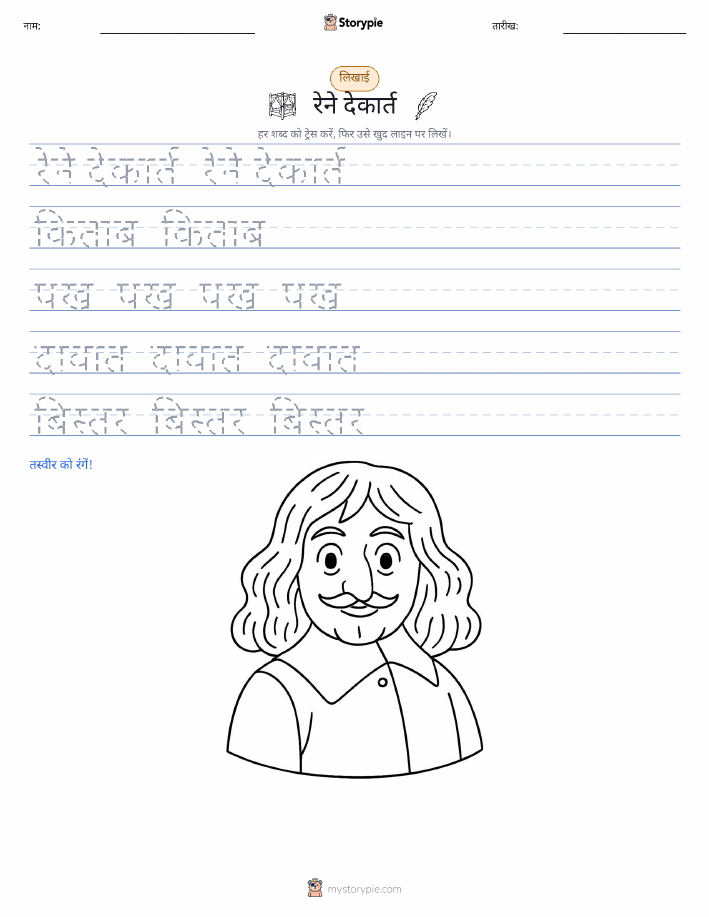 नाम:
Storypie
तारीख:
लिखाई
रेने देकार्त
हर शब्द को ट्रेस करें, फिर उसे खुद लाइन पर लिखें।
रेने देकार्त रेने देकार्त
किताब किताब
पंख पंख पंख पंख
दावात दावात दावात
बिस्तर बिस्तर बिस्तर
तस्वीर को रंगें!
mystorypie.com